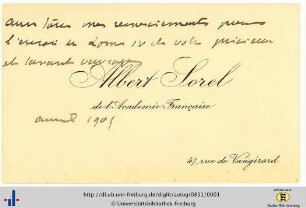 mes remerciements pour
l'envoi du tome IV de votre précieux
et savant ouvrage
Albert Sorel
de l'Académie Française
1905
47, rue de Vaugirard
http://dl.ub.uni-freiburg.de/diglit/autogr0851/0001
© Universitätsbibliothek Freiburg